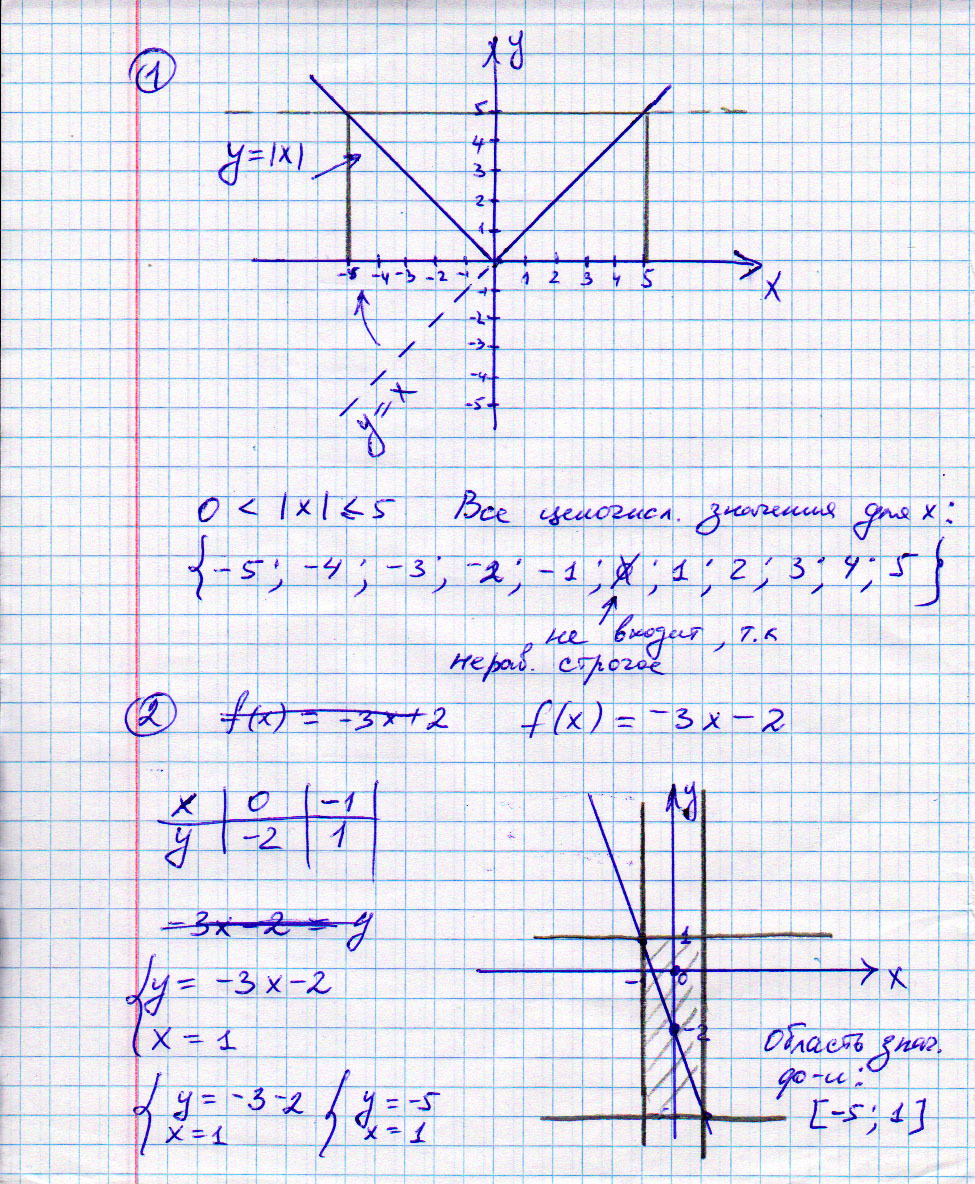 1
y
5
4
3
2
1
y = |x|
-5 -4 -3 -2 -1 1 2 3 4 5
x
-1
-2
-3
-4
-5
y = x
0 < |x| ≤ 5 Все целочисл. значения для x:
{-5; -4; -3; -2; -1; 0; 1; 2; 3; 4; 5}
не входит, т.к
нерав. строгое
2 f(x) = -3x+2 f(x) = -3x-2
x | 0 | -1
y | -2 | 1
y
1
0
x
-
-2
-3x-2 = y
{ y = -3x-2
x = 1
Область знач.
ф-и:
[-5; 1]
{ y = -3-2 { y = -5
x = 1 x = 1